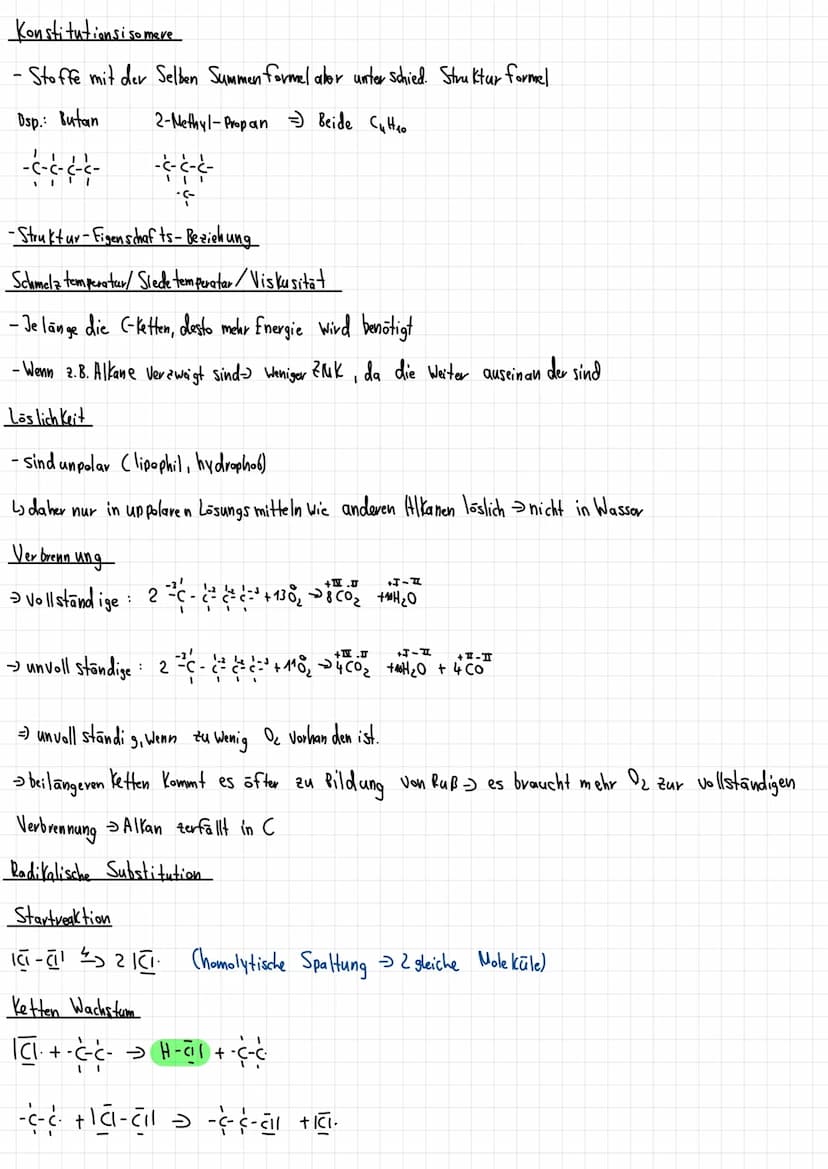 Konstitutionsisomere
- Stoffe mit der Selben Summenformel aber unterschied. Strukturformel
Bsp.: Butan 2-Methyl-Propan ⇒ Beide C₄H₁₀
-C-C-C-C- -C-C-C-
-C-
-Struktur-Eigenschafts-Beziehung
Schmelztemperatur/Siedetemperatur/Viskusität
- Je länge die C-Ketten, desto mehr Energie wird benötigt
- Wenn z.B. Alkane verzweigt sind→ weniger ZMK, da die weiter auseinander sind
Löslichkeit
- sind unpolar (lipophil, hydrophob)
↳ daher nur in unpolaren Lösungsmitteln wie anderen Alkanen löslich ⇒ nicht in Wasser
Verbrennung
⇒ Vollständige: 2 -C-C-C-C- + 13O₂ → 8CO₂ + 10H₂O
→ unvollständige: 2 -C-C-C-C- + 11O₂ → 4CO₂ + 10H₂O + 4CO
⇒ unvollständig, wenn zu wenig O₂ vorhanden ist.
⇒ bei längeren Ketten kommt es öfter zu Bildung von Ruß ⇒ es braucht mehr O₂ zur vollständigen
Verbrennung ⇒ Alkan zerfällt in C
Radikalische Substitution
Startreaktion
|Cl-Cl| → 2 |Cl· (homolytische Spaltung ⇒ 2 gleiche Moleküle)
Ketten Wachstum
|Cl· + -C-C- → H-Cl| + -C-C·
-C-C· + |Cl-Cl| ⇒ -C-C-Cl| + |Cl·